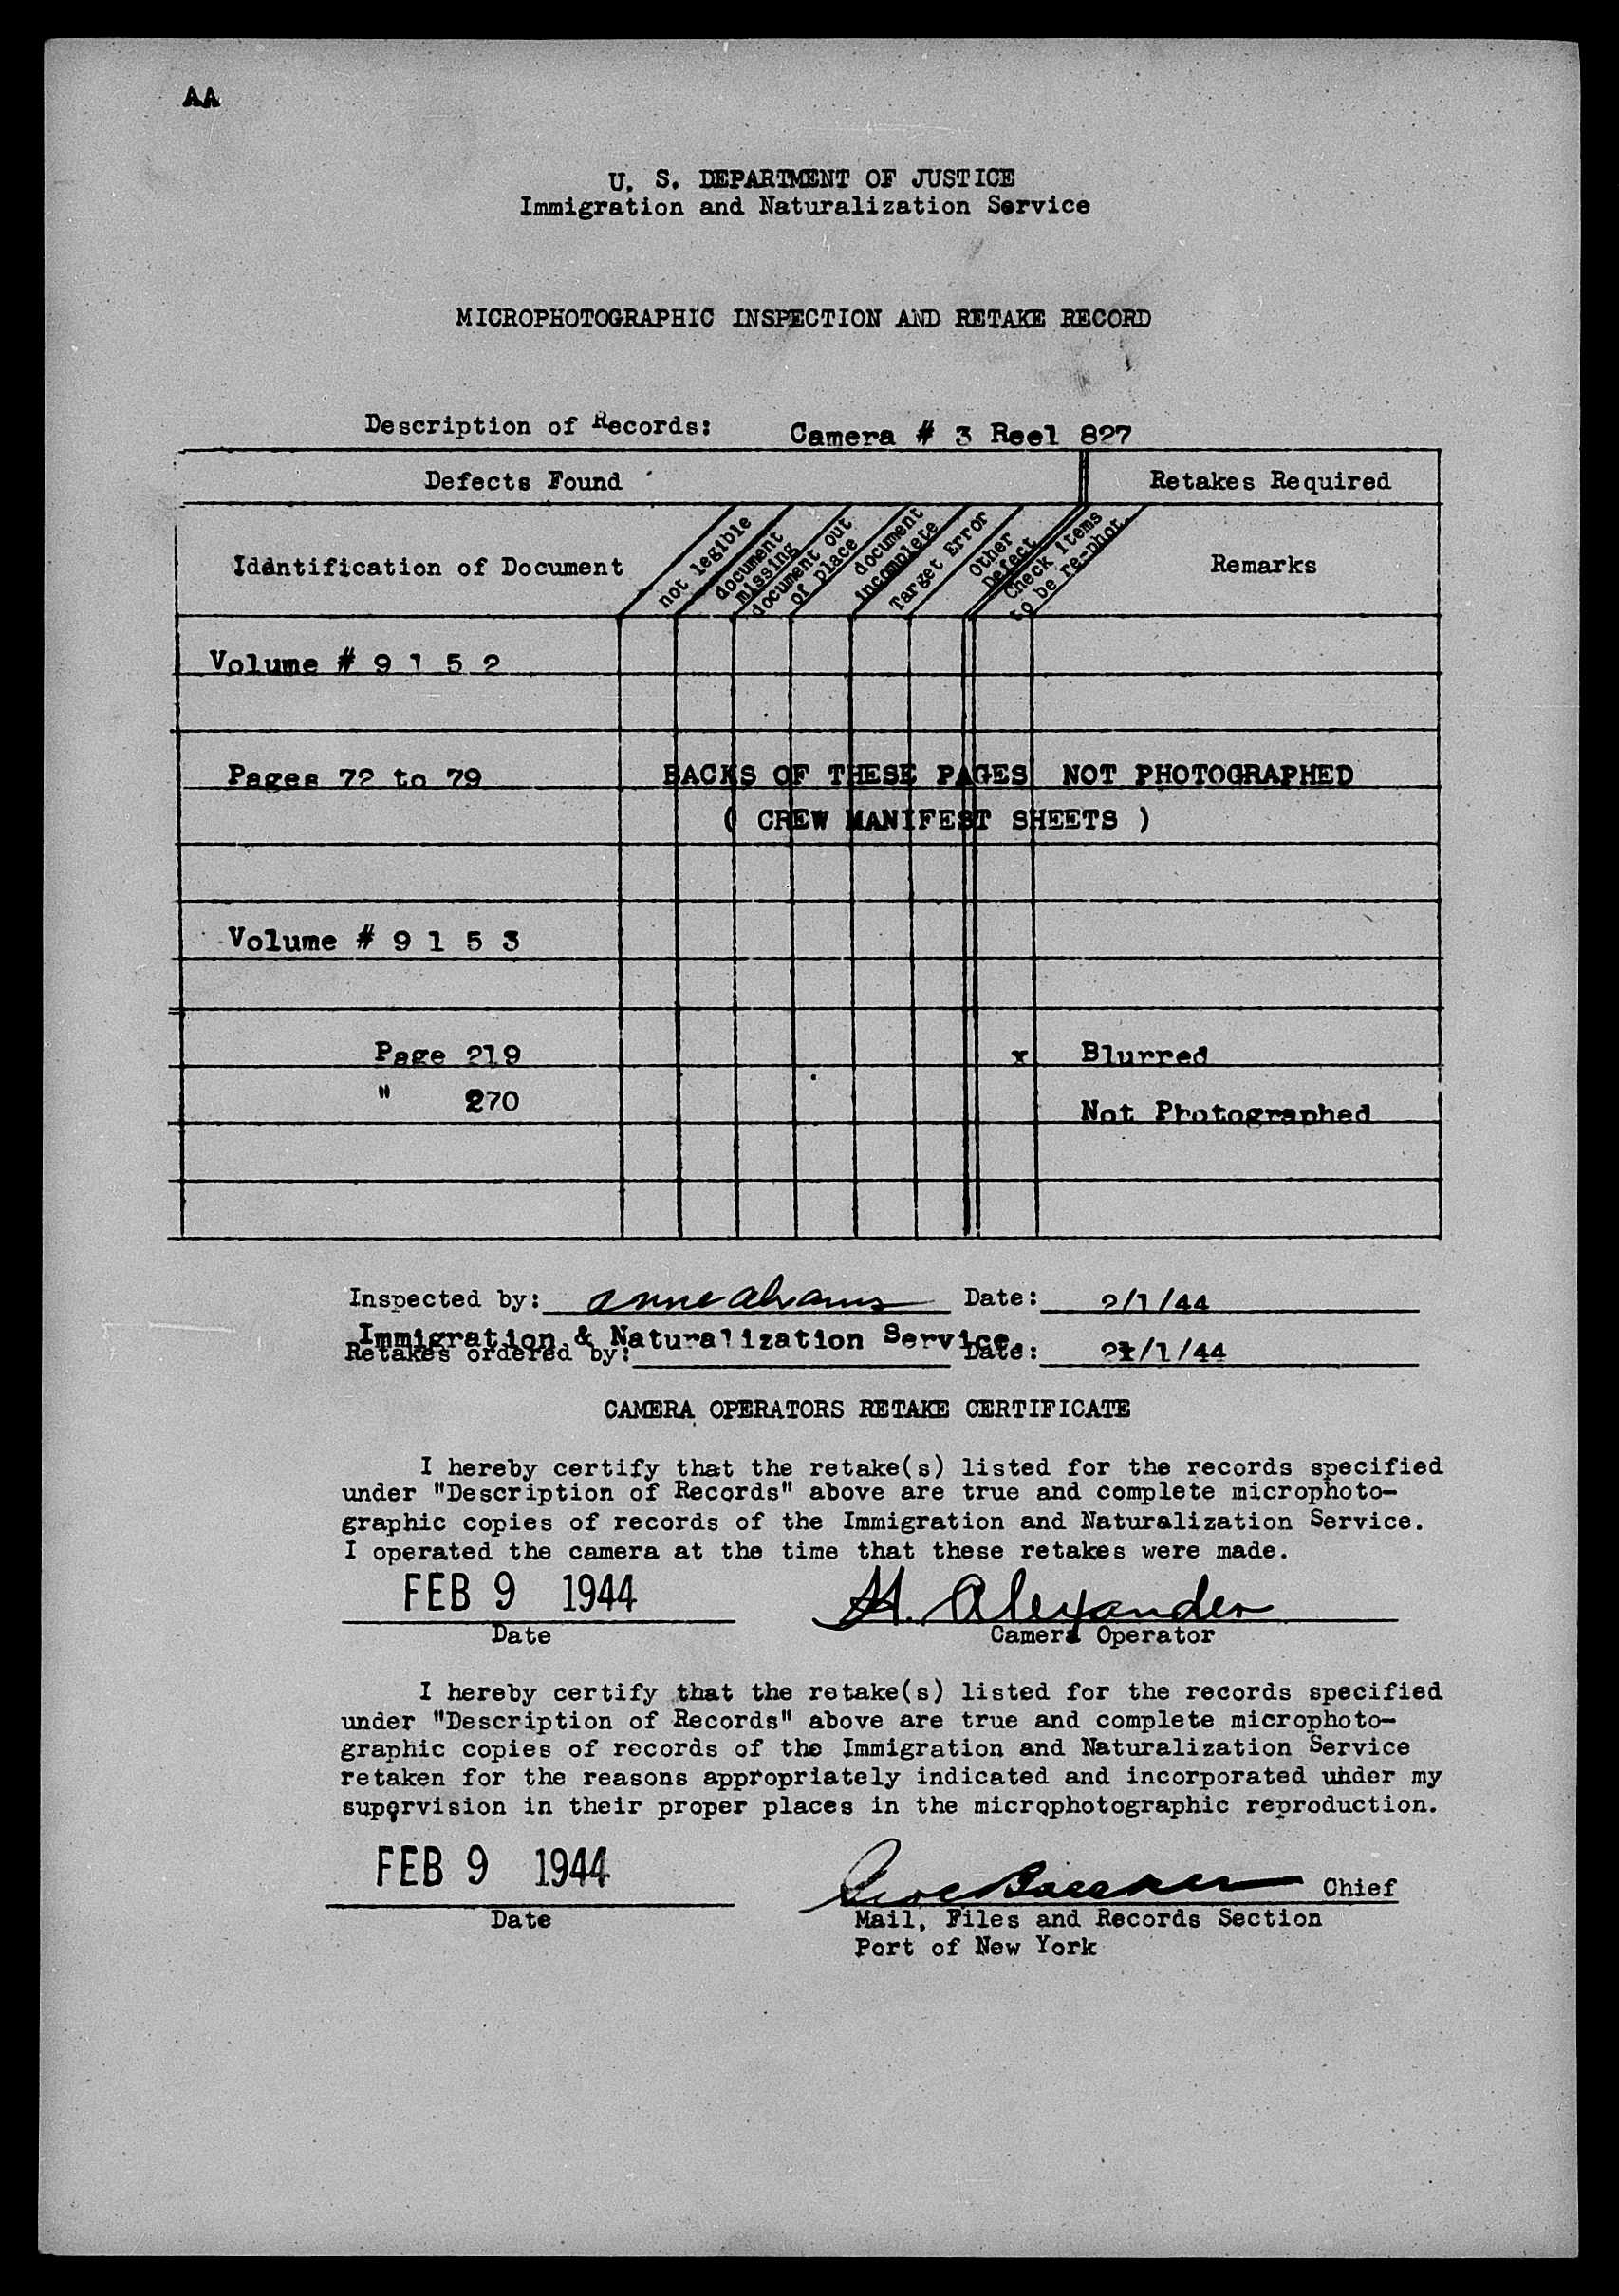 AA
U. S. DEPARTMENT OF JUSTICE
Immigration and Naturalization Service
MICROPHOTOGRAPHIC INSPECTION AND RETAKE RECORD
Description of Records: Camera # 3 Reel 827
Defects Found Retakes Required
Identification of Document
not legible
document missing
document out of place
document incomplete
Target Error
Other Defect
Check items to be re-phot.
Remarks
Volume # 9 1 5 2
Pages 72 to 79 BACKS OF THESE PAGES NOT PHOTOGRAPHED
( CREW MANIFEST SHEETS )
Volume # 9 1 5 3
Page 219 x Blurred
" 270 Not Photographed
Inspected by: Anne Abrams Date: 2/1/44
Immigration & Naturalization Service
Retakes ordered by: Date: 2/1/44
CAMERA OPERATORS RETAKE CERTIFICATE
I hereby certify that the retake(s) listed for the records specified
under "Description of Records" above are true and complete microphoto-
graphic copies of records of the Immigration and Naturalization Service.
I operated the camera at the time that these retakes were made.
FEB 9 1944 H. Alexander
Date Camera Operator
I hereby certify that the retake(s) listed for the records specified
under "Description of Records" above are true and complete microphoto-
graphic copies of records of the Immigration and Naturalization Service
retaken for the reasons appropriately indicated and incorporated under my
supervision in their proper places in the microphotographic reproduction.
FEB 9 1944 Chief
Date Mail, Files and Records Section
Port of New York